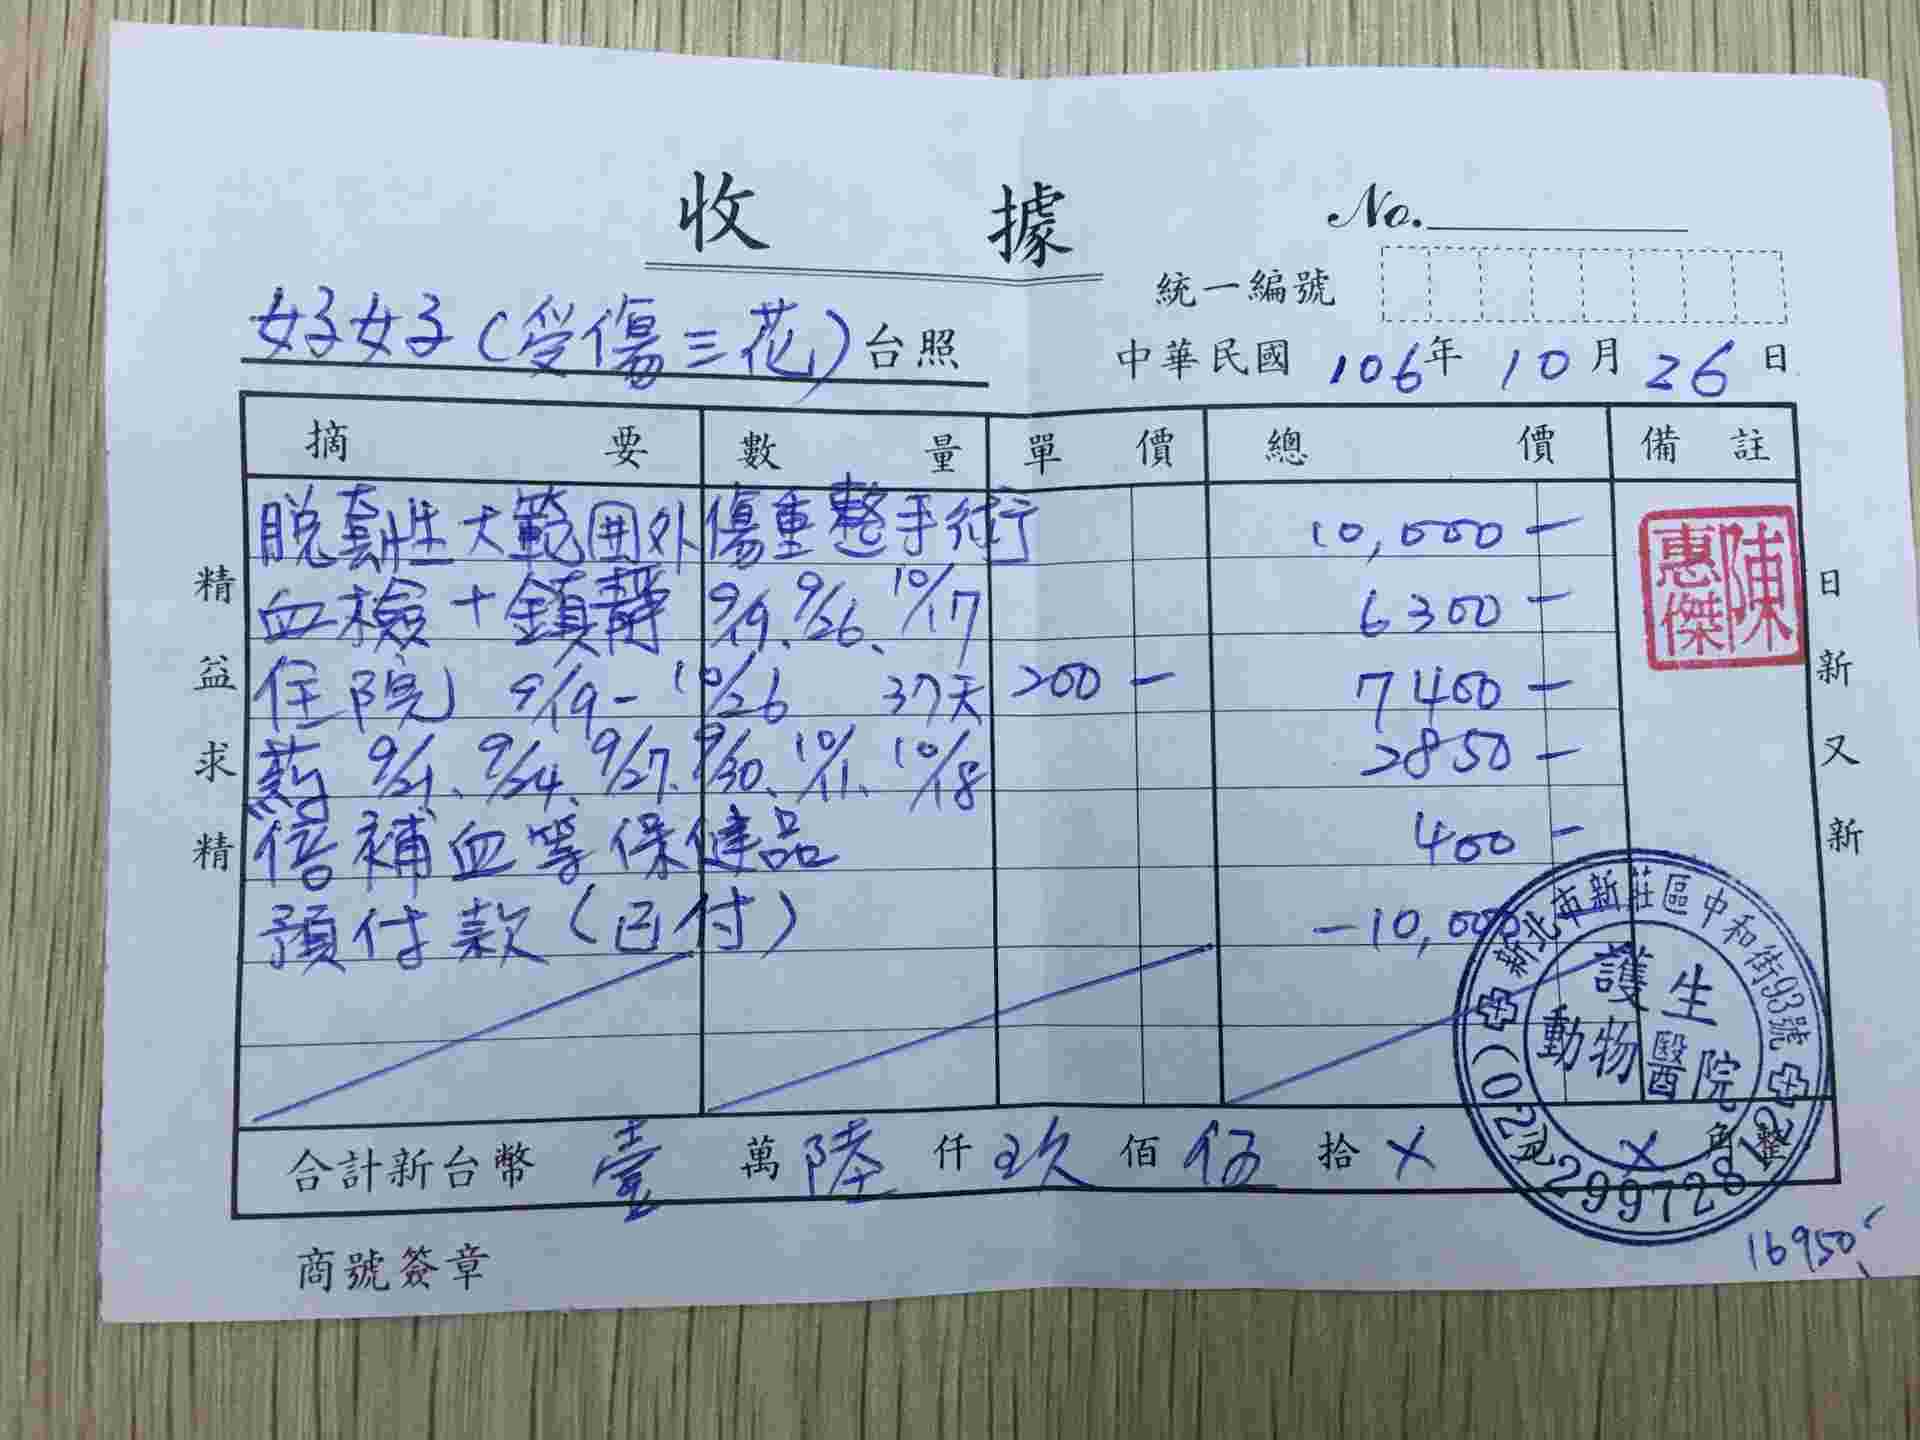 收 據
No.
統一編號
好好(受傷三花)台照
中華民國 106年 10月 26日
摘要 數量 單價 總價 備註
脫套性大範囲外傷重整手術 10,000 —
血檢+鎮靜 9/19、9/26、10/17 6300 —
住院 9/19-10/26 37天 200 — 7400 —
药 9/21、9/24、9/27、9/30、10/11、10/18 2850 —
倍補血等保健品 400 —
預付款(已付) -10,000 —
陳惠傑
精益求精
日新又新
新北市新莊區中和街93號
護生
動物醫院
(02)29972812
合計新台幣 壹萬陸仟玖佰伍拾X元X角整
16950
商號簽章